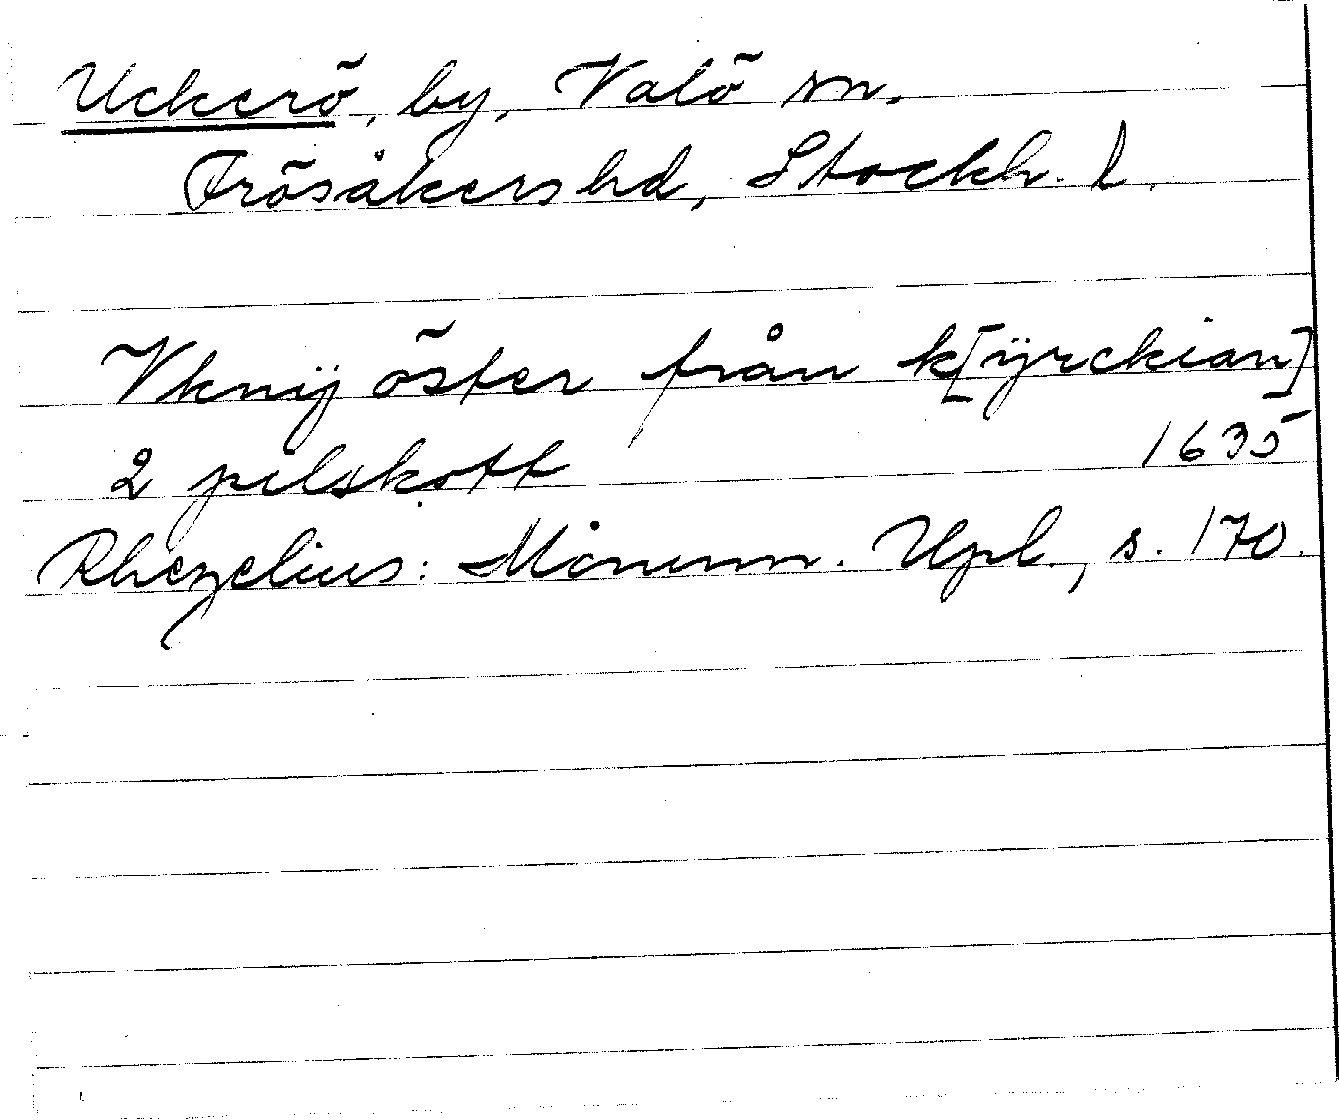 Uckerö, by, Valö sn.
Frösåkers hd, Stockh. l.
Vknÿ öster från k[ÿrckian]
2 pilskott 1635
Rhezelius: Monum. Upl., s. 170.